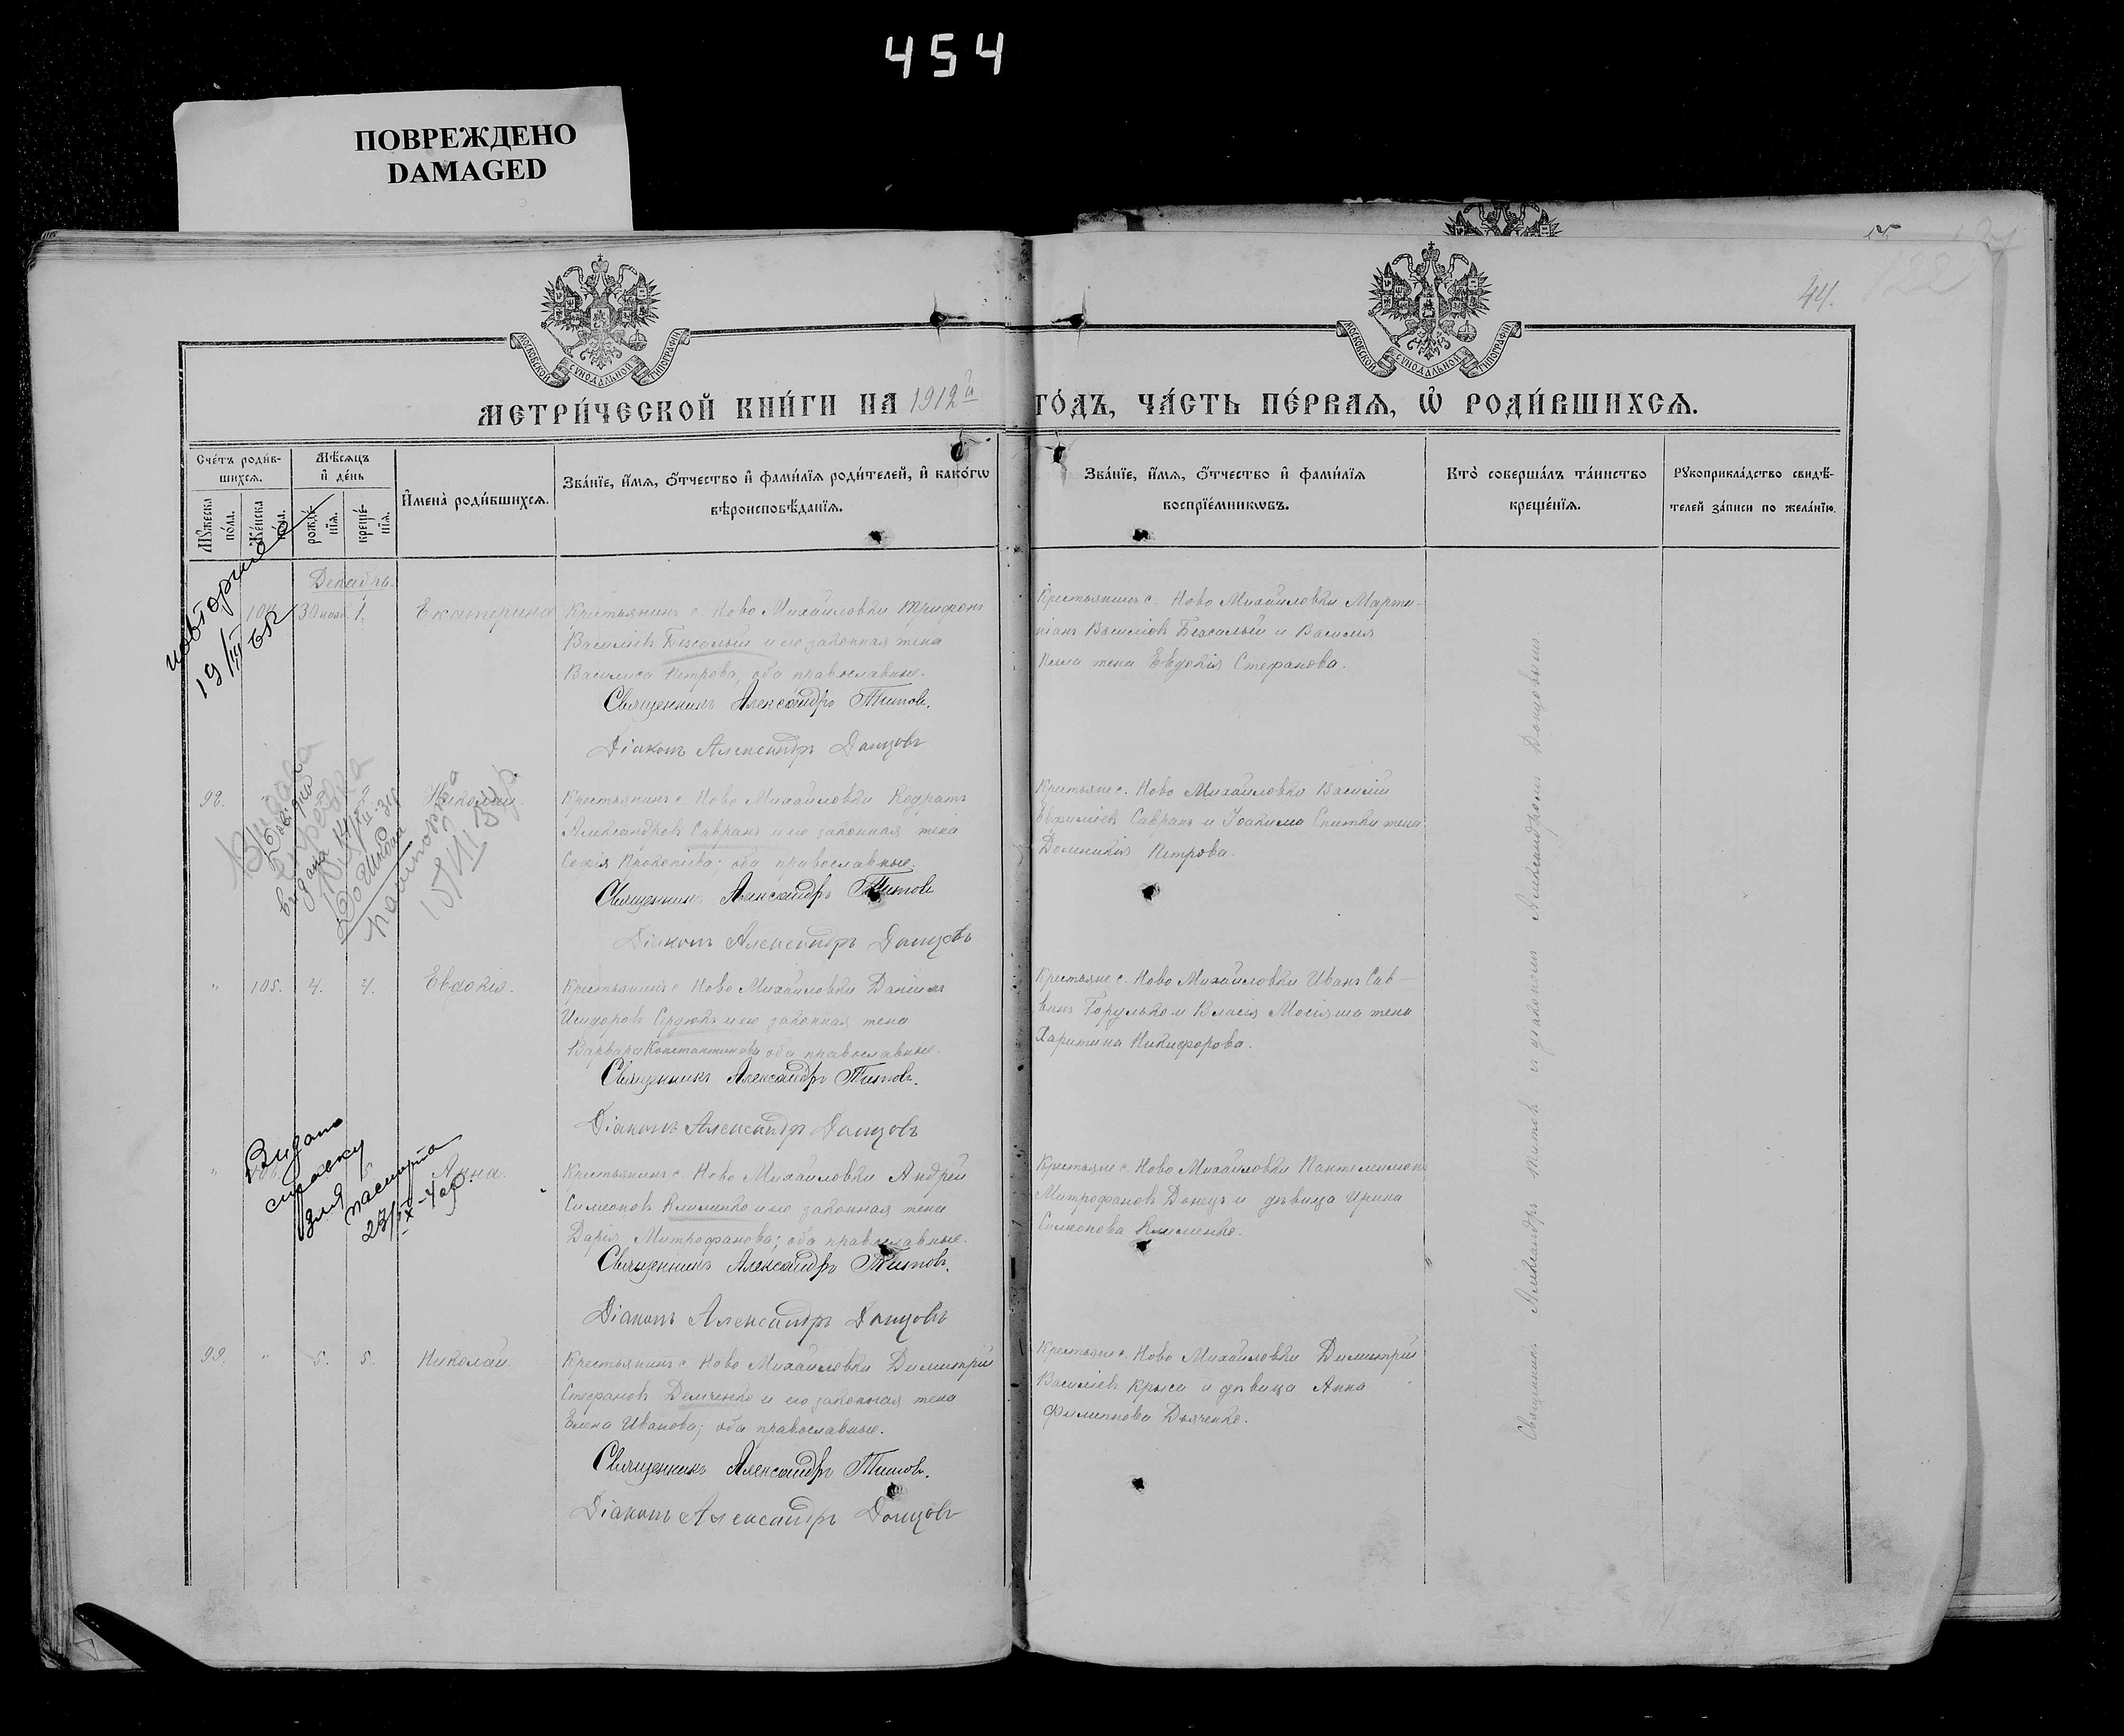 454
ПОВРЕЖДЕНО
DAMAGED
44.
МОСКОВСКОЙ СУНОДАЛЬНОЙ ТИПОГРАФІИ
МОСКОВСКОЙ СУНОДАЛЬНОЙ ТИПОГРАФІИ
МЕТРИ́ЧЕСКОЙ КНИ́ГИ НА 1912й ГО́ДЪ, ЧА́СТЬ ПЕ́РВАЯ, Ѡ҆ РОДИ́ВШИХСЯ.
Сче́тъ роди́в-
шихся.
Му́жеска по́ла.
Же́нска по́ла.
Мѣ́сяцъ
и҆ де́нь
рожде́-
нїя.
креще́-
нїя.
И҆мена̀ роди́вшихся.
Зва́нїе, и҆́мя, ѻ҆́тчество и҆ фами́лїя роди́телей, и҆ како́гѡ
вѣроисповѣ́данїя.
Зва́нїе, и҆́мя, ѻ҆́тчество и҆ фами́лїя
воспрїе́мникѡвъ.
Кто̀ соверша́лъ та́инство
креще́нїя.
Рꙋкоприкла́дство свидѣ́-
телей за́писи по жела́нїю.
Декабрь.
повторно
19/III 52
104 30 нояб. 1. Екатерина
Крестьянинъ с. Ново Михайловки Трифонъ
Василіевъ Безсалый и его законная жена
Василиса Петрова, оба православные.
Священникъ Александръ Титовъ.
Діаконъ Александръ Донцовъ
Крестьянинъ с. Ново Михайловки Марти-
ніанъ Василіевъ Безсалый и Василія
жена Евдокія Стефанова.
98. Николай
Видана
Довідка
видана
Крестьянинъ с. Ново Михайловки Кодратъ
Александровъ Савранъ и его законная жена
Софія Прокопіева; оба православные.
Священникъ Александръ Титовъ
Діаконъ Александръ Донцовъ
Крестьяне с. Ново Михайловки Василій
Евфиміевъ Савранъ и Іоакима Снитки жена
Домникія Петрова.
" 105. 4. 4. Евдокія.
Крестьянинъ с. Ново Михайловки Даніилъ
Исидоровъ Сердюкъ и его законная жена
Варвара Константинова оба православные.
Священникъ Александръ Титовъ.
Діаконъ Александръ Донцовъ
Крестьяне с. Ново Михайловки Иванъ Сав-
винъ Горулько и Власія Мосіяша жена
Харитина Никифорова.
" Анна.
Видано
справку
для паспорта
23/IX-40р.
Крестьянинъ с. Ново Михайловки Андрей
Симеоновъ Клименко и его законная жена
Дарія Митрофанова; оба православные.
Священникъ Александръ Титовъ.
Діаконъ Александръ Донцовъ
Крестьяне с. Ново Михайловки Пантелеимонъ
Митрофановъ Донецъ и дѣвица Ирина
Симеонова Клименко.
99. " 5. 5. Николай.
Крестьянинъ с. Ново Михайловки Димитрій
Стефановъ Демченко и его законная жена
Елена Иванова; оба православные.
Священникъ Александръ Титовъ.
Діаконъ Александръ Донцовъ
Крестьяне с. Ново Михайловки Димитрій
Василіевъ Крыса и дѣвица Анна
Филиппова Дьяченко.
Священникъ Александръ Титовъ и діакономъ Александромъ Донцовымъ